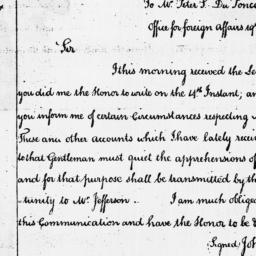 To Mr. Peter S. Du Ponce
Office for foreign Affairs 19
Sir
I this morning received the Le
you did me the Honor to write on the 4th Instant; an
you inform me of certain Circumstances respecting
These and other accounts which I have lately recei
to that Gentleman must quiet the apprehensions of
and for that purpose shall be transmitted by th
tunity to Mr. Jefferson. I am much oblige
this Communication and have the Honor to be &
Signed Joh